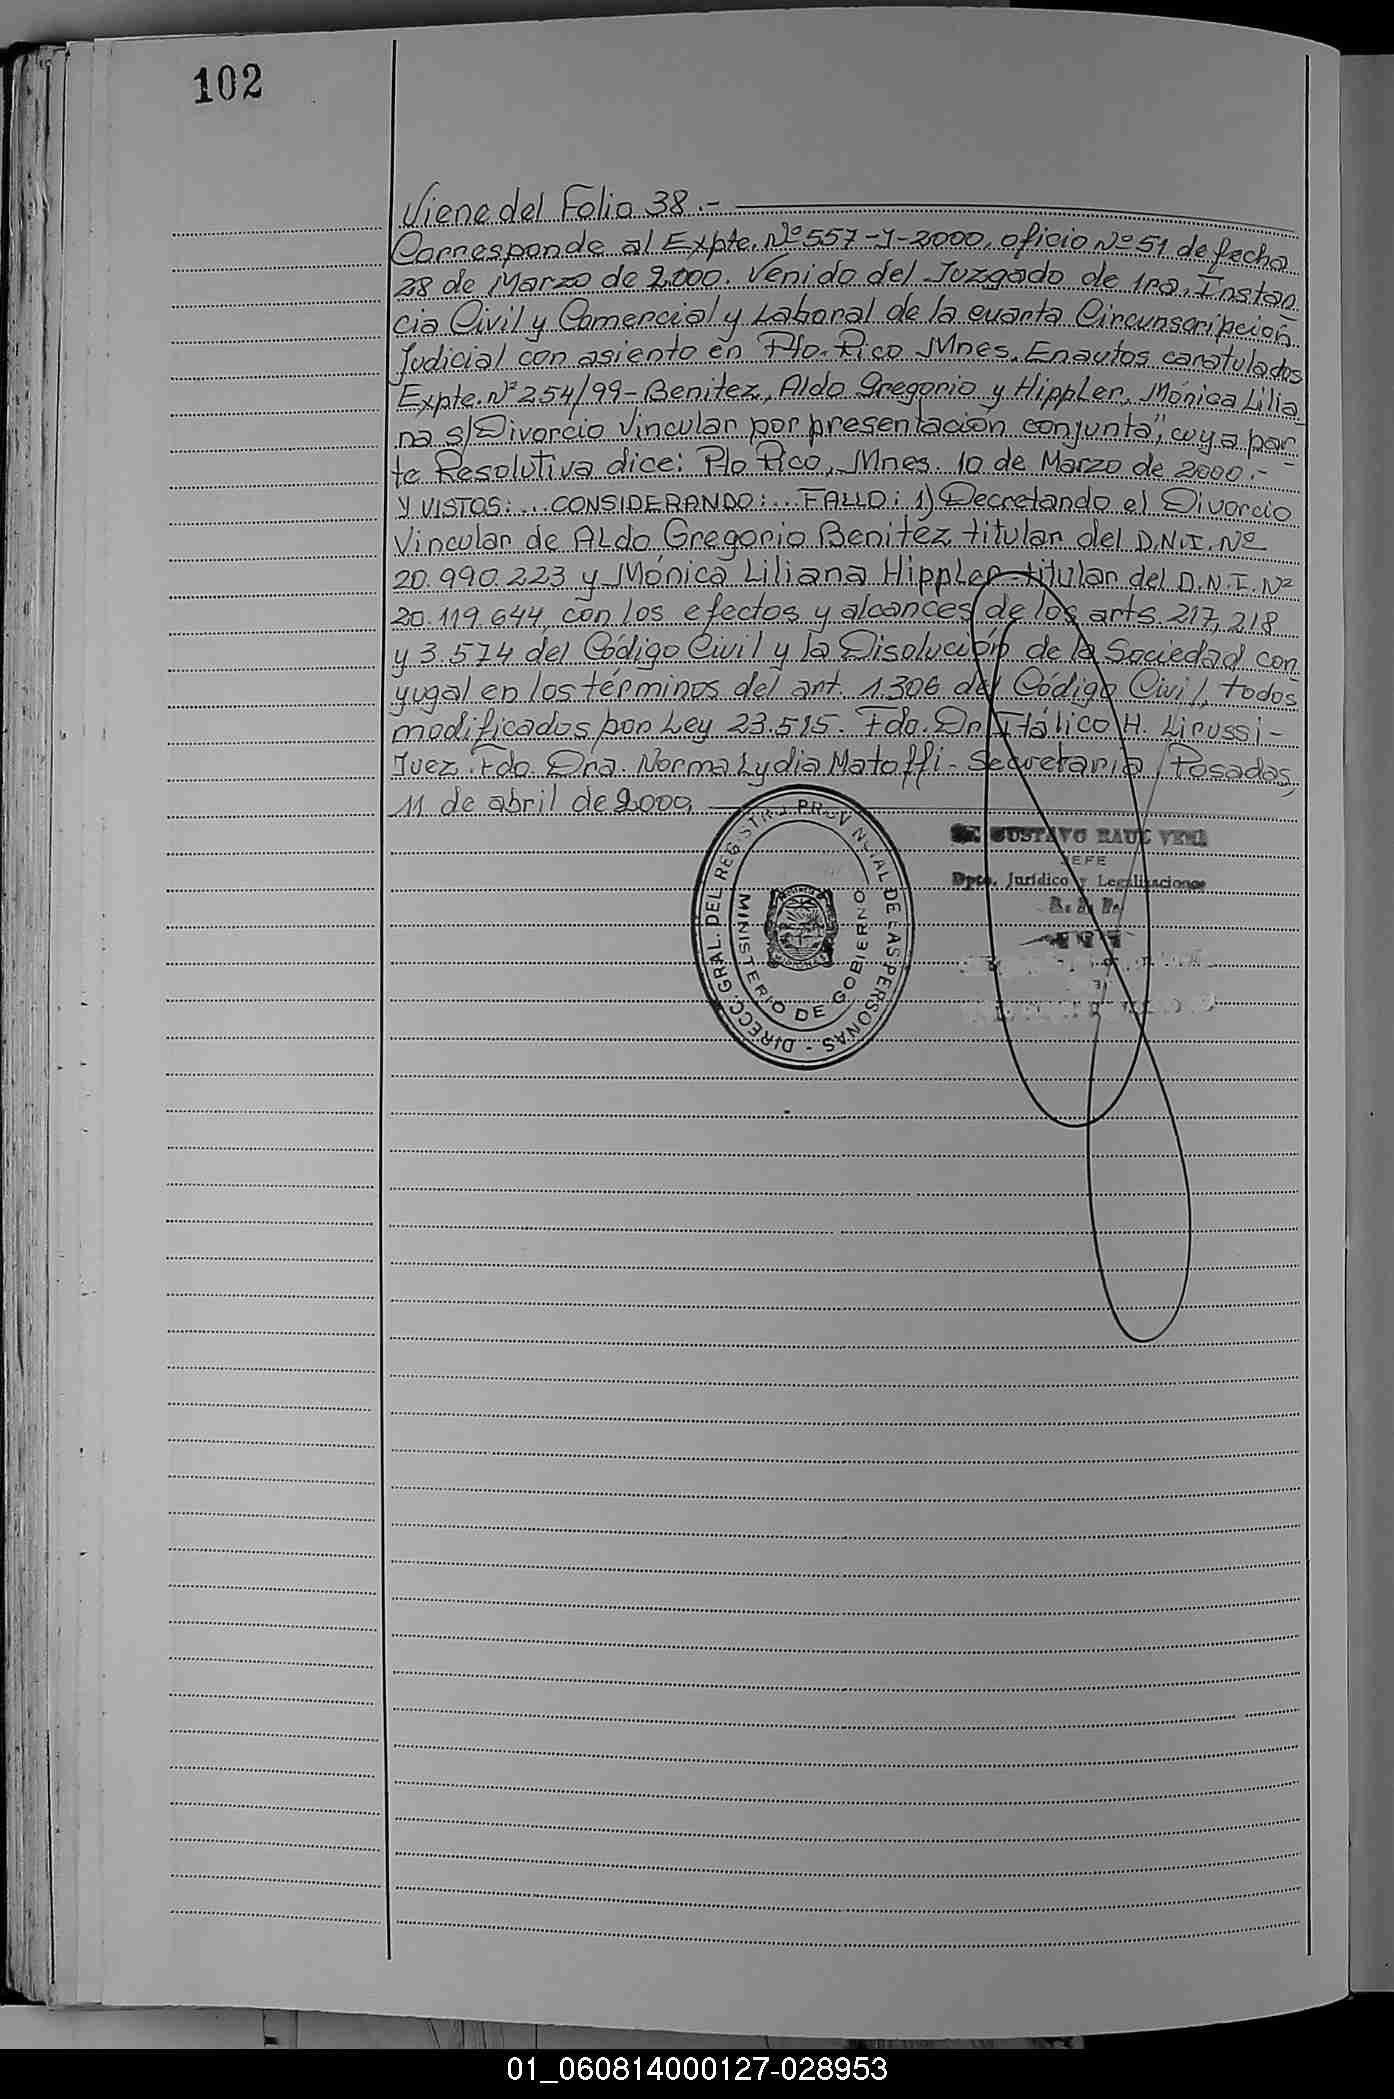 102
Viene del Folio 38.-
Corresponde al Expte. Nº 557-J-2000, oficio Nº 51 de fecha
28 de Marzo de 2.000. Venido del Juzgado de 1ra. Instan
cia Civil y Comercial y Laboral de la cuarta Circunscripción
Judicial con asiento en Pto. Rico Mnes. En autos caratulados
Expte. Nº 254/99- Benitez, Aldo Gregorio y Hippler, Mónica Lilia
na s/Divorcio Vincular por presentación conjunta", cuya par
te Resolutiva dice: Pto Rico, Mnes. 10 de Marzo de 2000.-
Y VISTOS:...CONSIDERANDO:...FALLO: 1) Decretando el Divorcio
Vincular de Aldo Gregorio Benitez titular del D.N.I. Nº
20.990.223 y Mónica Liliana Hippler titular del D.N.I. Nº
20.119.644, con los efectos y alcances de los arts. 217, 218
y 3.574 del Código Civil y la Disolución de la Sociedad con
yugal en los términos del art. 1.306 del Código Civil, todos
modificados por Ley 23.515. Fdo. Dr. Itálico H. Lirussi-
Juez. Fdo. Dra. Norma Lydia Matoffi- Secretaria, Posadas,
11 de abril de 2000
DIRECC. GRAL. DEL REGISTRO PROVINCIAL DE LAS PERSONAS -
MINISTERIO DE GOBIERNO
GUSTAVO RAUL VERA
JEFE
Dpto. Jurídico y Legalizaciones
01_060814000127-028953